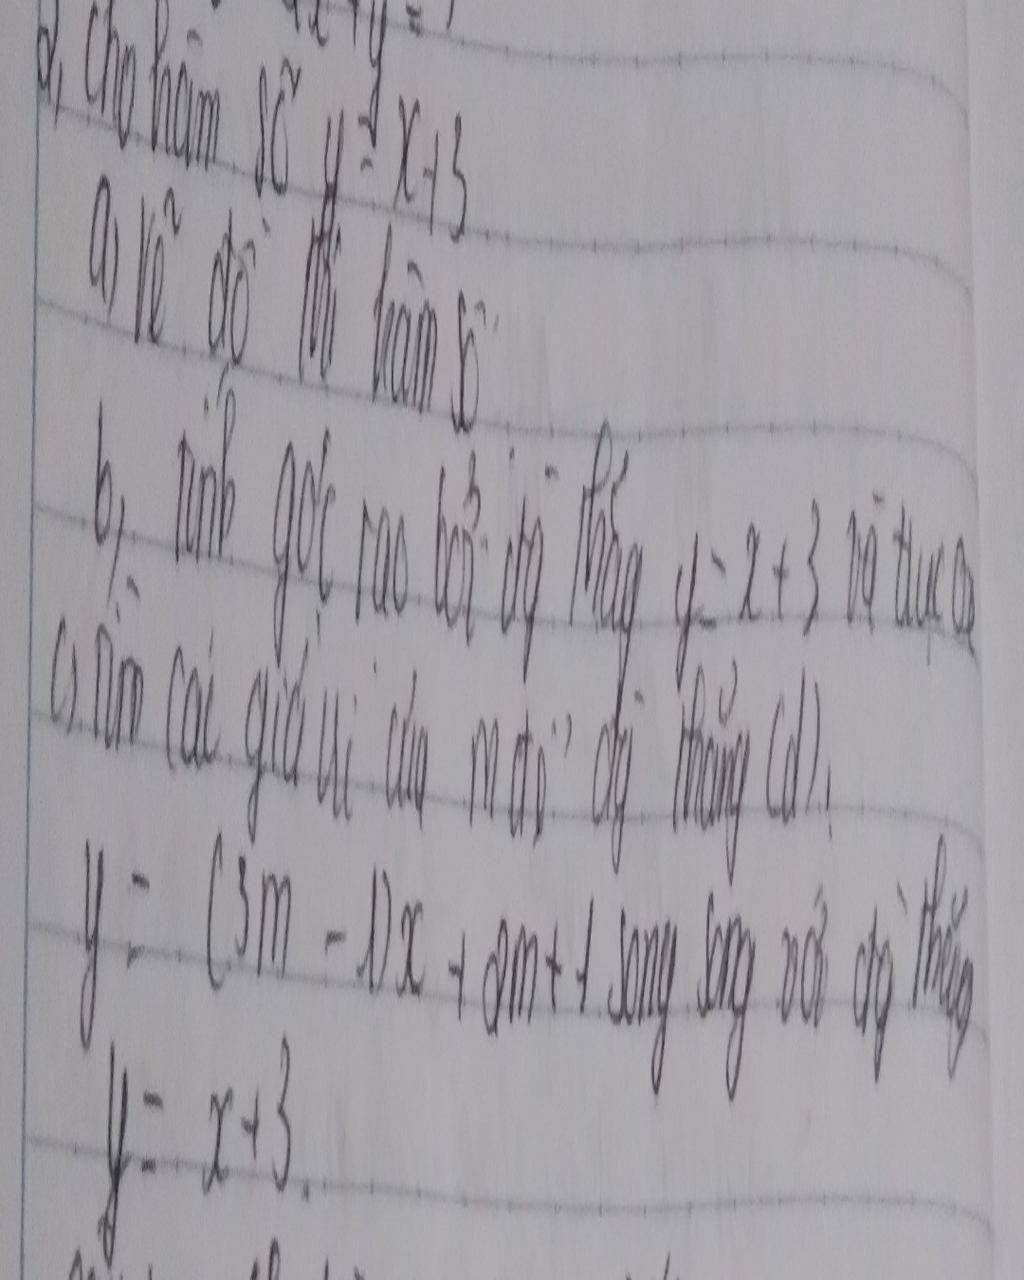 x + y =
2, Cho hàm số y = x + 3
a, vẽ đồ thị hàm số
b, Tính góc tạo bởi đg thẳng y = x + 3 và trục Ox
c, Tìm các giá trị của m để đg thẳng (d),
y = (3m - 1)x + 2m + 1 song song với đg thẳng
y = x + 3.